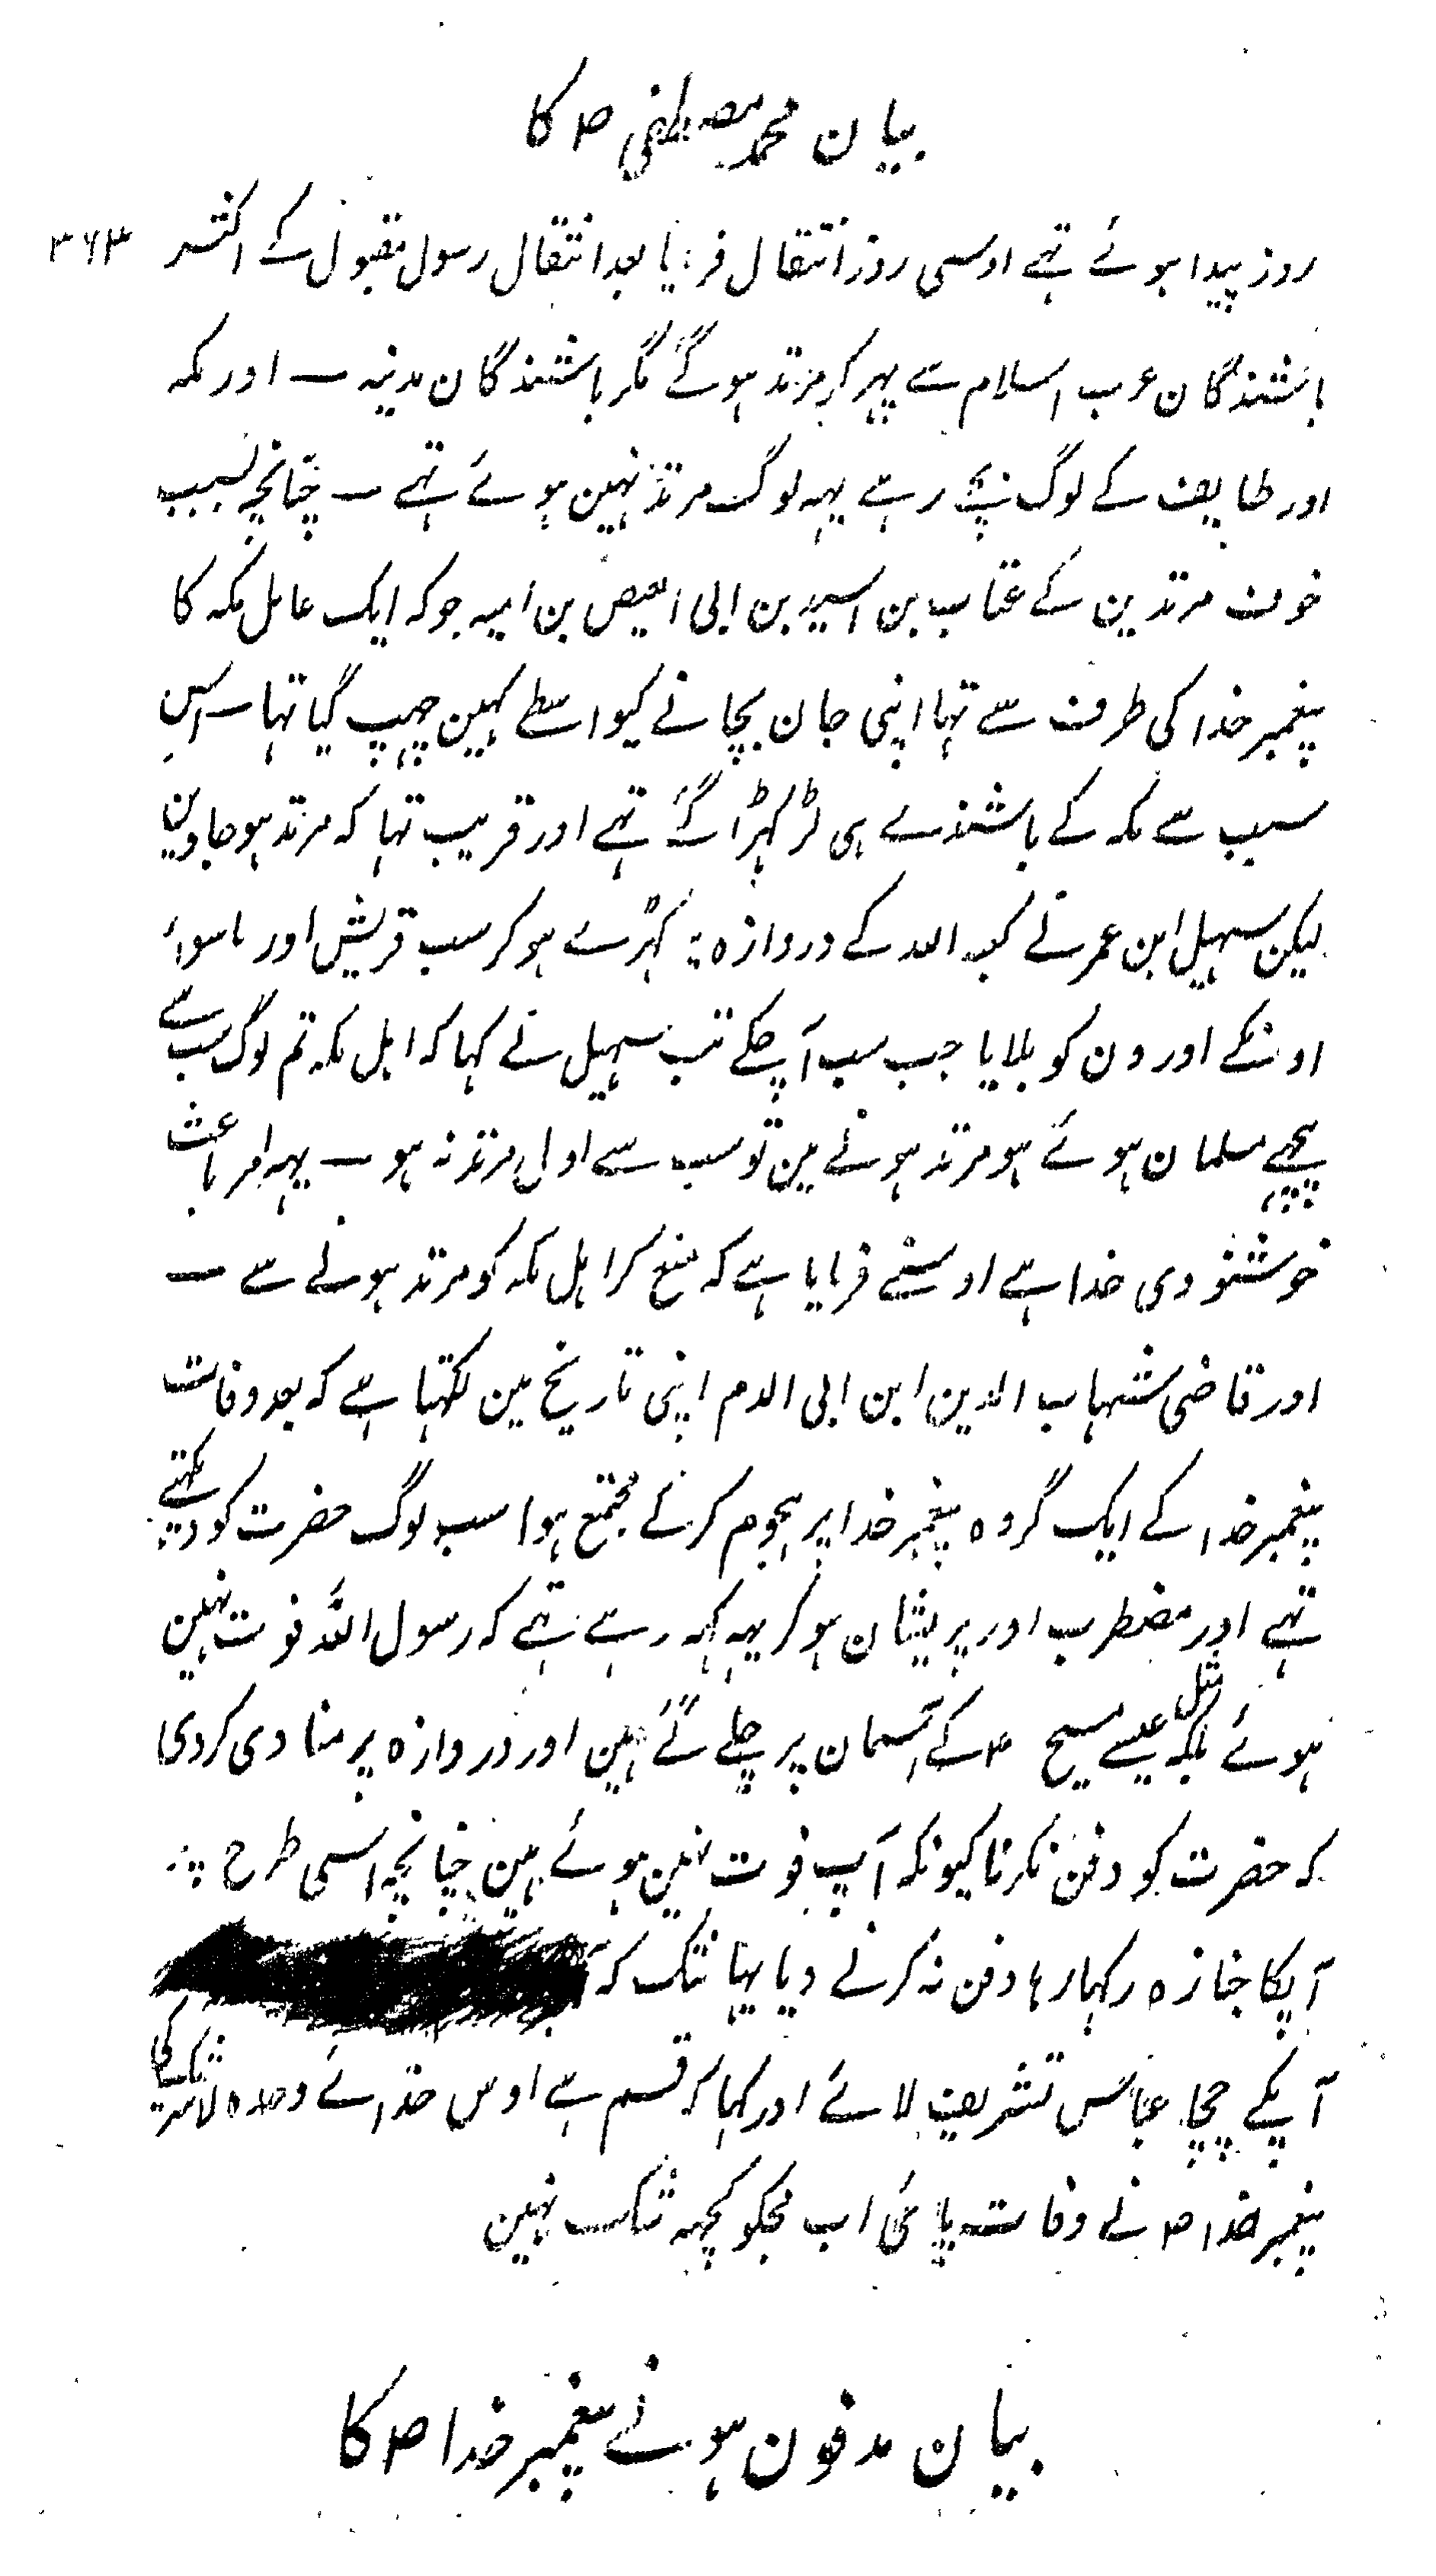 بیان محمد مصطفیٰ ص کا
۳۶۳
روز پیدا ہوئے تہے اوسی روز انتقال فرمایا بعد انتقال رسول مقبول کے اکثر
باشندگان عرب اسلام سے پہر کر مرتد ہو گئے مگر باشندگان مدینہ — اور مکہ
اور طایف کے لوگ بچے رہے یہہ لوگ مرتد نہین ہوئے تہے — چنانچہ بسبب
خوف مرتدین کے عتاب بن اسید بن ابی العیص بن امیہ جو کہ ایک عامل مکہ کا
پیغمبر خدا کی طرف سے تہا اپنی جان بچانے کیواسطے کہین چہپ گیا تہا — اس
سبب سے مکہ کے باشندے بہی لڑکہڑا گئے تہے اور قریب تہا کہ مرتد ہو جاوین
لیکن سہیل ابن عمر نے کعبۃ اللہ کے دروازہ پر کہڑے ہو کر سب قریش اور ماسوائے
اونکے اورون کو بلایا جب سب آ چکے تب سہیل نے کہا کہ اہل مکہ تم لوگ سب سے
پیچہے مسلمان ہوئے ہو مرتد ہونے مین تو سب سے اول مرتد نہ ہو — یہہ امر باعث
خوشنودی خدا ہے اوسنے فرمایا ہے کہ منع کر اہل مکہ کو مرتد ہونے سے —
اور قاضی شہاب الدین ابن ابی الدم اپنی تاریخ مین لکہتا ہے کہ بعد وفات
پیغمبر خدا کے ایک گروہ پیغمبر خدا پر ہجوم کرکے مجتمع ہوا سب لوگ حضرت کو دیکہتے
تہے اور مضطرب اور پریشان ہو کر یہہ کہہ رہے تہے کہ رسول اللہ فوت نہین
ہوئے بلکہ مثل عیسے مسیح ع کے آسمان پر چلے گئے ہین اور دروازہ پر منادی کردی
کہ حضرت کو دفن نکرنا کیونکہ آپ فوت نہین ہوئے ہین چنانچہ اسی طرح پر
آپکا جنازہ رکہا رہا دفن نہ کرنے دیا یہانتک کہ
آپکے چچا عباس تشریف لائے اور کہا کہ قسم ہے اوس خدائے وحدہ لاشریک کی
پیغمبر خدا ص نے وفات پائی اب مجکو کچہہ شک نہین
بیان مدفون ہونے پیغمبر خدا ص کا